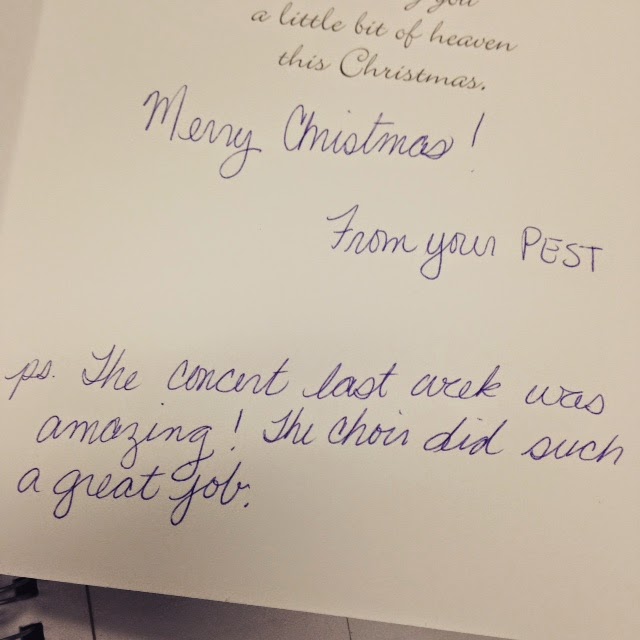 you
a little bit of heaven
this Christmas.
Merry Christmas!
From your PEST
ps. The concert last week was
amazing! The choir did such
a great job.